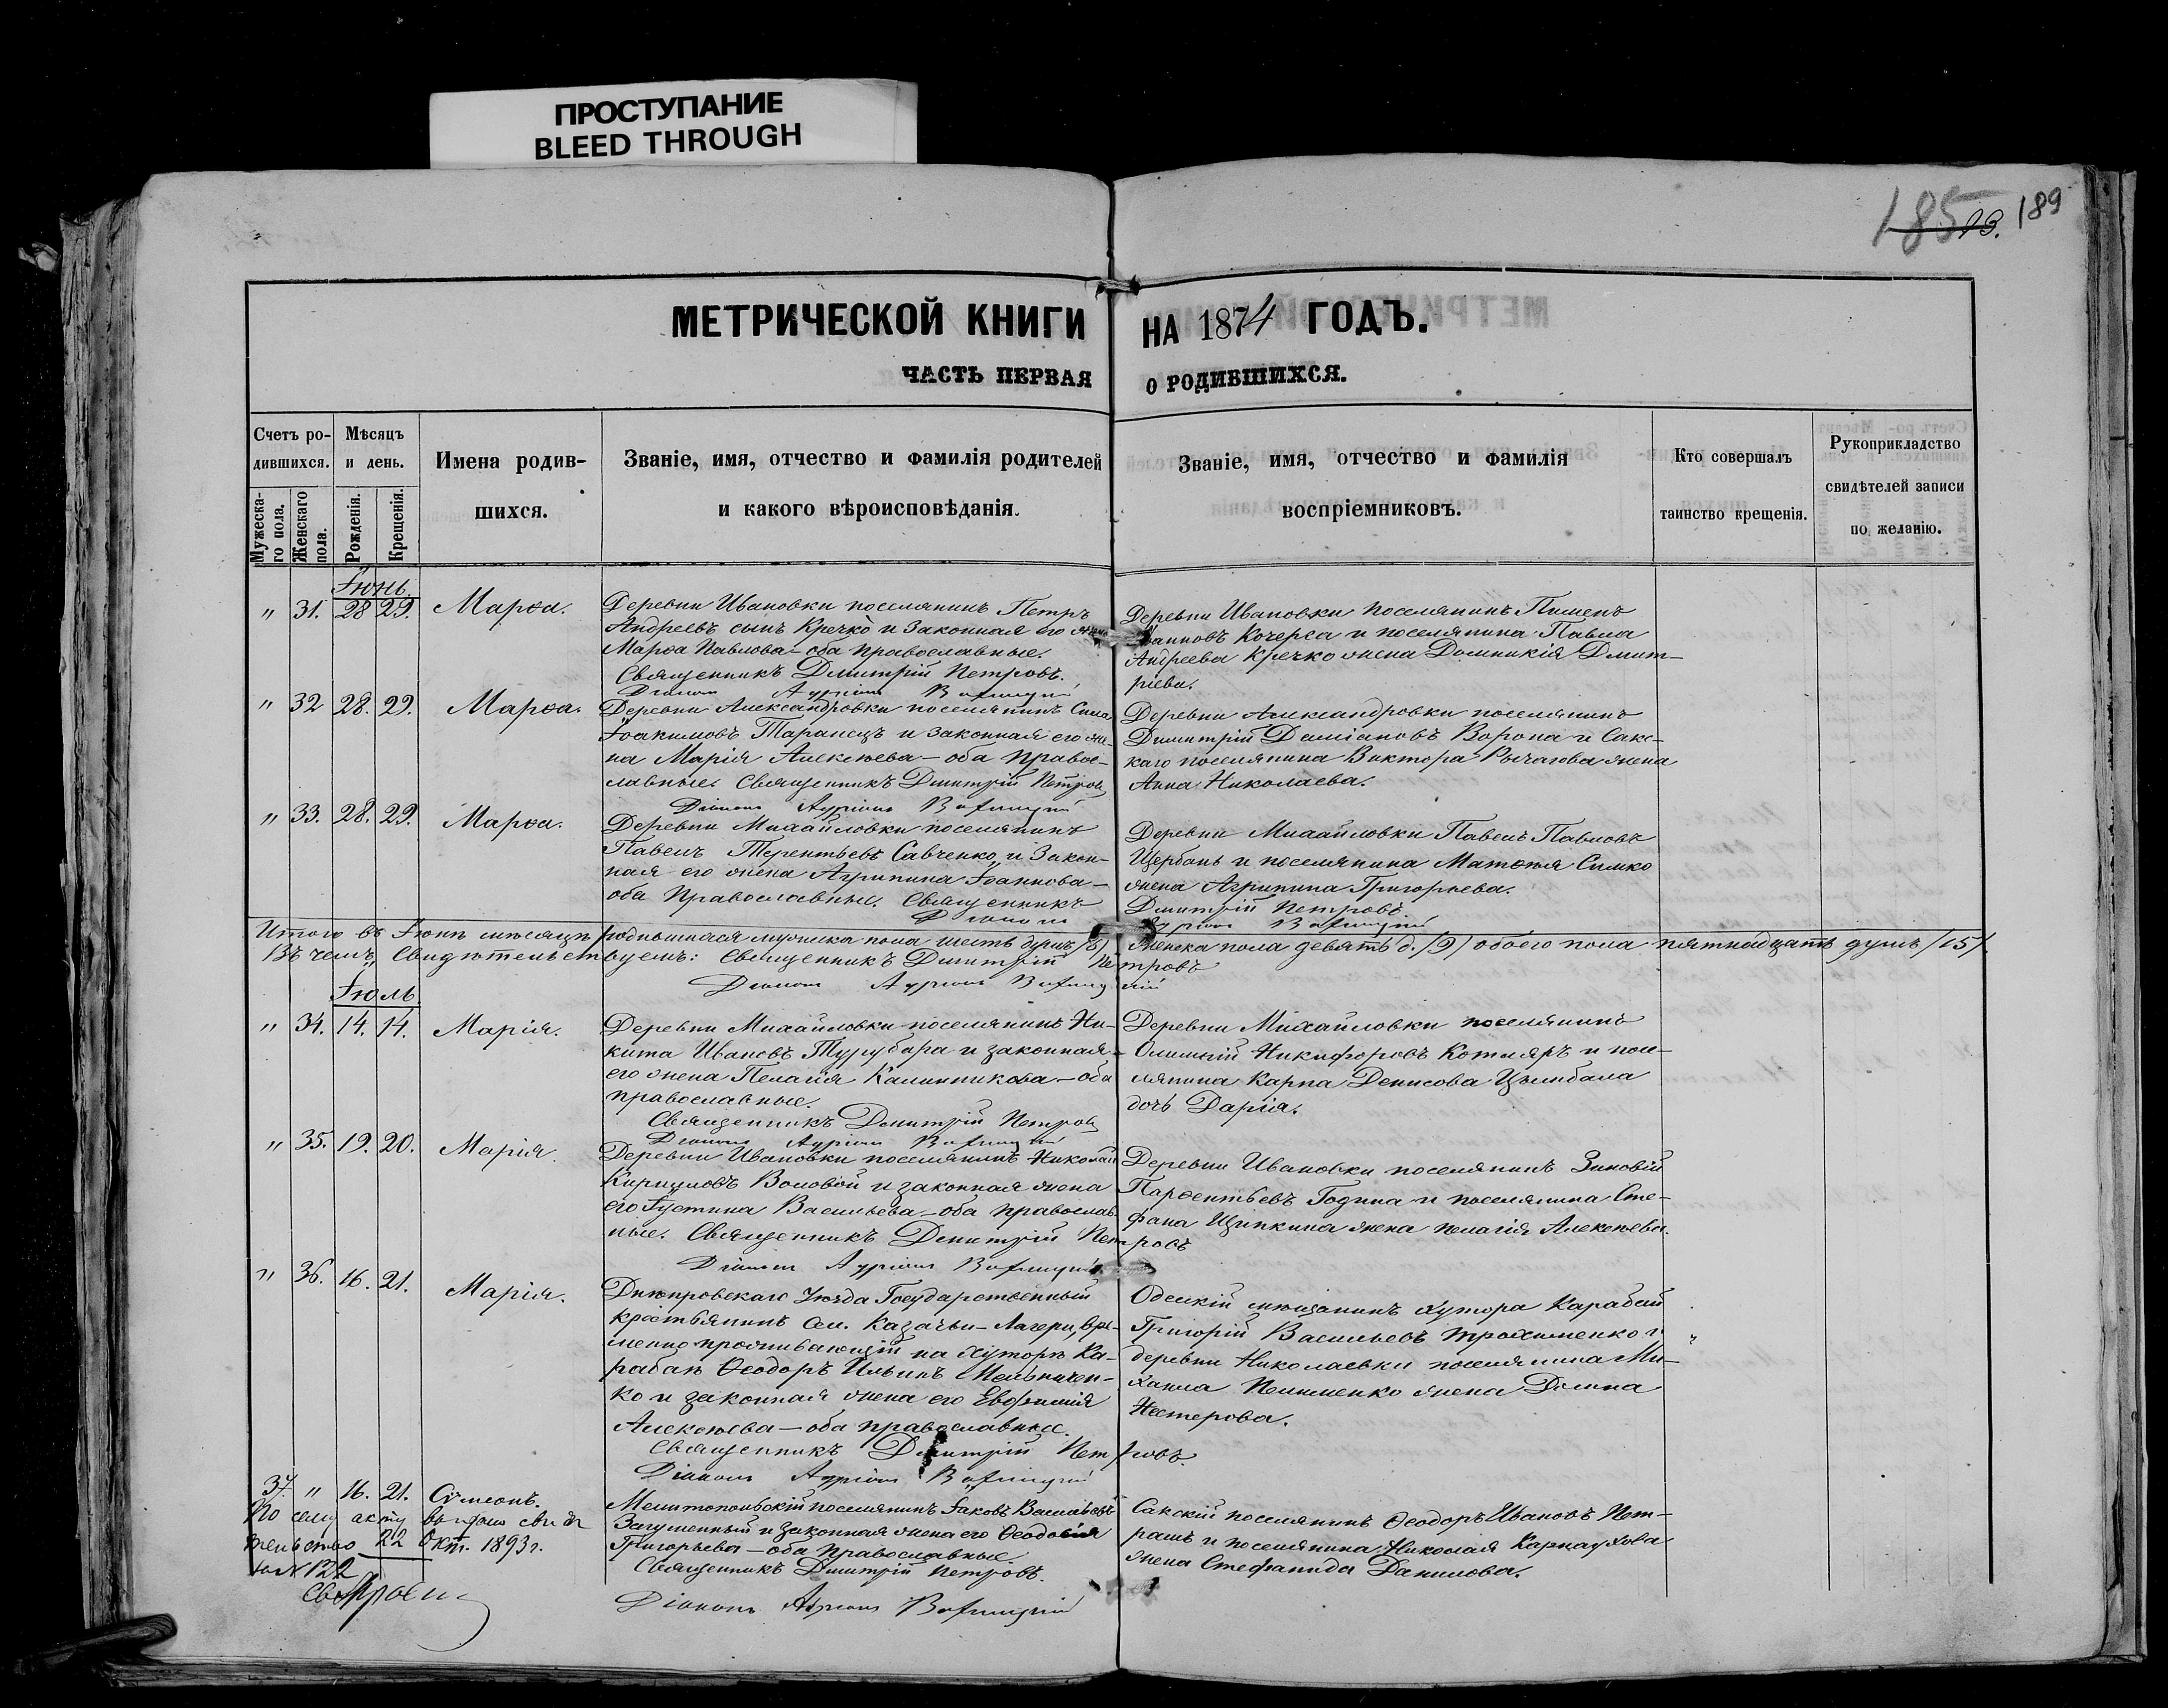 ПРОСТУПАНИЕ
BLEED THROUGH
185 13. 189
МЕТРИЧЕСКОЙ КНИГИ НА 1874 ГОДЪ.
ЧАСТЬ ПЕРВАЯ О РОДИВШИХСЯ.
Счетъ ро-
дившихся.
Мужеска-
го пола.
Женскаго
пола.
Мѣсяцъ
и день.
Рожденія.
Крещенія.
Имена родив-
шихся.
Званіе, имя, отчество и фамилія родителей
и какого вѣроисповѣданія.
Званіе, имя, отчество и фамилія
воспріемниковъ.
Кто совершалъ
таинство крещенія.
Рукоприкладство
свидѣтелей записи
по желанію.
Іюнь
" 31. 28 29. Марѳа.
Деревни Ивановки поселянинъ Петръ
Андреевъ сынъ Кречко и законная его жена
Марѳа Павлова – оба православные.
Священникъ Дмитрій Петровъ.
Діаконъ
Деревни Ивановки поселянинъ Пименъ
Іоанновъ Кочерга и поселянина Павла
Андреева Кречко жена Домникія Дмит-
ріева.
" 32 28. 29. Марѳа.
Деревни Александровки поселянинъ Сила
Іоакимовъ Таранецъ и законная его же-
на Марія Алексѣева – оба правос-
лавные. Священникъ Дмитрій Петровъ
Діаконъ
Деревни Александровки поселянинъ
Димитрій Даміановъ Ворона и Сакс-
каго поселянина Виктора Рычагова жена
Анна Николаева.
" 33. 28. 29. Марѳа.
Деревни Михайловки поселянинъ
Павелъ Терентьевъ Савченко и закон-
ная его жена Агрипина Іоаннова –
оба православные. Священникъ
Діаконъ
Деревни Михайловки Павелъ Павловъ
Щербань и поселянина Матѳея Симко
жена Агрипина Григорьева.
Дмитрій Петровъ
Итого въ Іюнѣ мѣсяцѣ родившихся мужеска пола шесть душъ /6/ женска пола девять д. /9/ обоего пола пятнадцать душъ /15/.
Въ чемъ, свидѣтельствуемъ: Священникъ Димитрій Петровъ
Діаконъ
Іюль
" 34. 14. 14. Марія.
Деревни Михайловки поселянинъ Ни-
кита Ивановъ Турубара и законная
его жена Пелагія Калинникова – оба
православные.
Священникъ Дмитрій Петровъ
Діаконъ
Деревни Михайловки поселянинъ
Никифоровъ Котляръ и посе-
лянина Карпа Денисова Цымбала
дочь Дарія.
" 35. 19. 20. Марія.
Деревни Ивановки поселянинъ Николай
Кирилловъ Воловой и законная жена
его Іустина Васильева – оба православ-
ные. Священникъ Димитрій Петровъ
Діаконъ
Деревни Ивановки поселянинъ Зиновій
Парѳентьевъ Година и поселянина Сте-
фана Щипкина жена Пелагія Алексѣева.
" 36. 16. 21. Марія.
Днѣпровскаго Уѣзда Государственный
крестьянинъ сел. Казачьи-Лагери, вре-
менно проживающій на хуторѣ Ка-
рабаѣ Ѳеодоръ Ильинъ Мельничен-
ко и законная жена его Евфимія
Алексѣева – оба православные.
Священникъ Дмитрій Петровъ.
Діаконъ
Одесскій мѣщанинъ хутора Карабай
Григорій Васильевъ Трохименко и
деревни Николаевки поселянина Ми-
хаила жена Домна
Нестерова.
37. " 16. 21. Сѵмеонъ.
Мелитопольскій поселянинъ Іаковъ Васильевъ
Загуменный и законная жена его Ѳеодосія
Григорьева – оба православные.
Священникъ Дмитрій Петровъ.
Діаконъ
Сакскій поселянинъ Ѳеодоръ Ивановъ Пет-
рашъ и поселянина Николая Карнаухова
жена Стефанида Данилова.
По сему акту выдано свидѣ
тельство 22 Окт. 1893 г.
за № 122